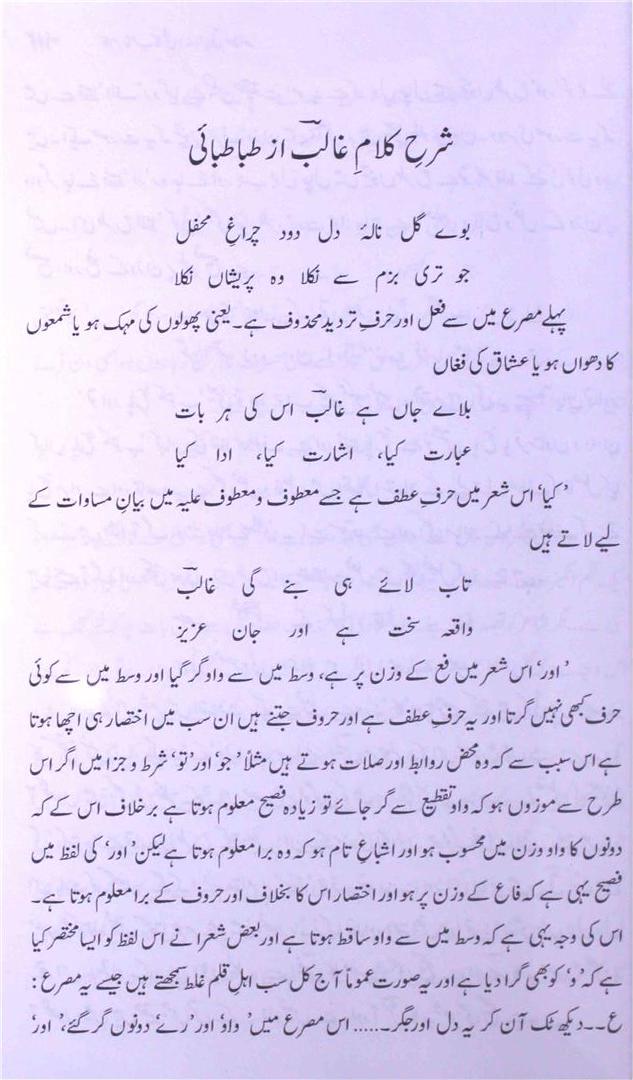 شرح کلامِ غالبؔ از طباطبائی
بوے گل نالۂ دل دود چراغِ محفل
جو تری بزم سے نکلا وہ پریشاں نکلا
پہلے مصرع میں سے فعل اور حرفِ تردید محذوف ہے۔ یعنی پھولوں کی مہک ہو یا شمعوں
کا دھواں ہو یا عشاق کی فغاں
بلاے جاں ہے غالبؔ اس کی ہر بات
عبارت کیا، اشارت کیا، ادا کیا
’کیا‘ اس شعر میں حرفِ عطف ہے جسے معطوف و معطوف علیہ میں بیانِ مساوات کے
لیے لاتے ہیں
تاب لائے ہی بنے گی غالبؔ
واقعہ سخت ہے اور جان عزیز
’اور‘ اس شعر میں فع کے وزن پر ہے، وسط میں سے واو گر گیا اور وسط میں سے کوئی
حرف کبھی نہیں گرتا اور یہ حرفِ عطف ہے اور حروف جتنے ہیں ان سب میں اختصار ہی اچھا ہوتا
ہے اس سبب سے کہ وہ محض روابط اور صلات ہوتے ہیں مثلاً ’جو‘ اور ’تو‘ شرط و جزا میں اگر اس
طرح سے موزوں ہو کہ واو تقطیع سے گر جائے تو زیادہ فصیح معلوم ہوتا ہے برخلاف اس کے کہ
دونوں کا واو وزن میں محسوب ہو اور اشباعِ تام ہو کہ وہ برا معلوم ہوتا ہے لیکن ’اور‘ کی لفظ میں
فصیح یہی ہے کہ فاع کے وزن پر ہو اور اختصار اس کا بخلاف اور حروف کے برا معلوم ہوتا ہے۔
اس کی وجہ یہی ہے کہ وسط میں سے واو ساقط ہوتا ہے اور بعض شعرا نے اس لفظ کو ایسا مختصر کیا
ہے کہ ’و‘ کو بھی گرا دیا ہے اور یہ صورت عموماً آج کل سب اہلِ قلم غلط سمجھتے ہیں جیسے یہ مصرع:
ع۔۔ دیکھ ٹک آن کر یہ دل اور جگر۔۔۔۔۔ اس مصرع میں ’واو‘ اور ’رے‘ دونوں گر گئے، ’اور‘